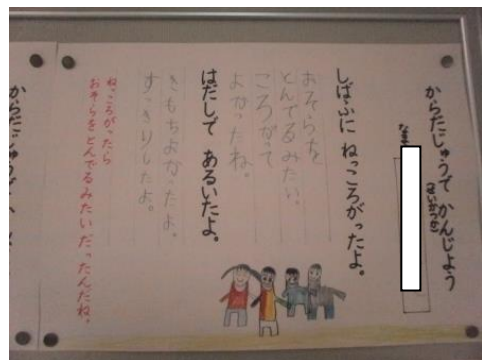 からだじゅうで かんじよう
なまえ
しばふに ねっころがったよ。
おそらを
とんでるみたい。
ころがって
よかったね。
はだしで あるいたよ。
きもちよかったよ。
すっきりしたよ。
ねっころがったら
おそらをとんでるみたいだったんだね。
からだじゅうで か